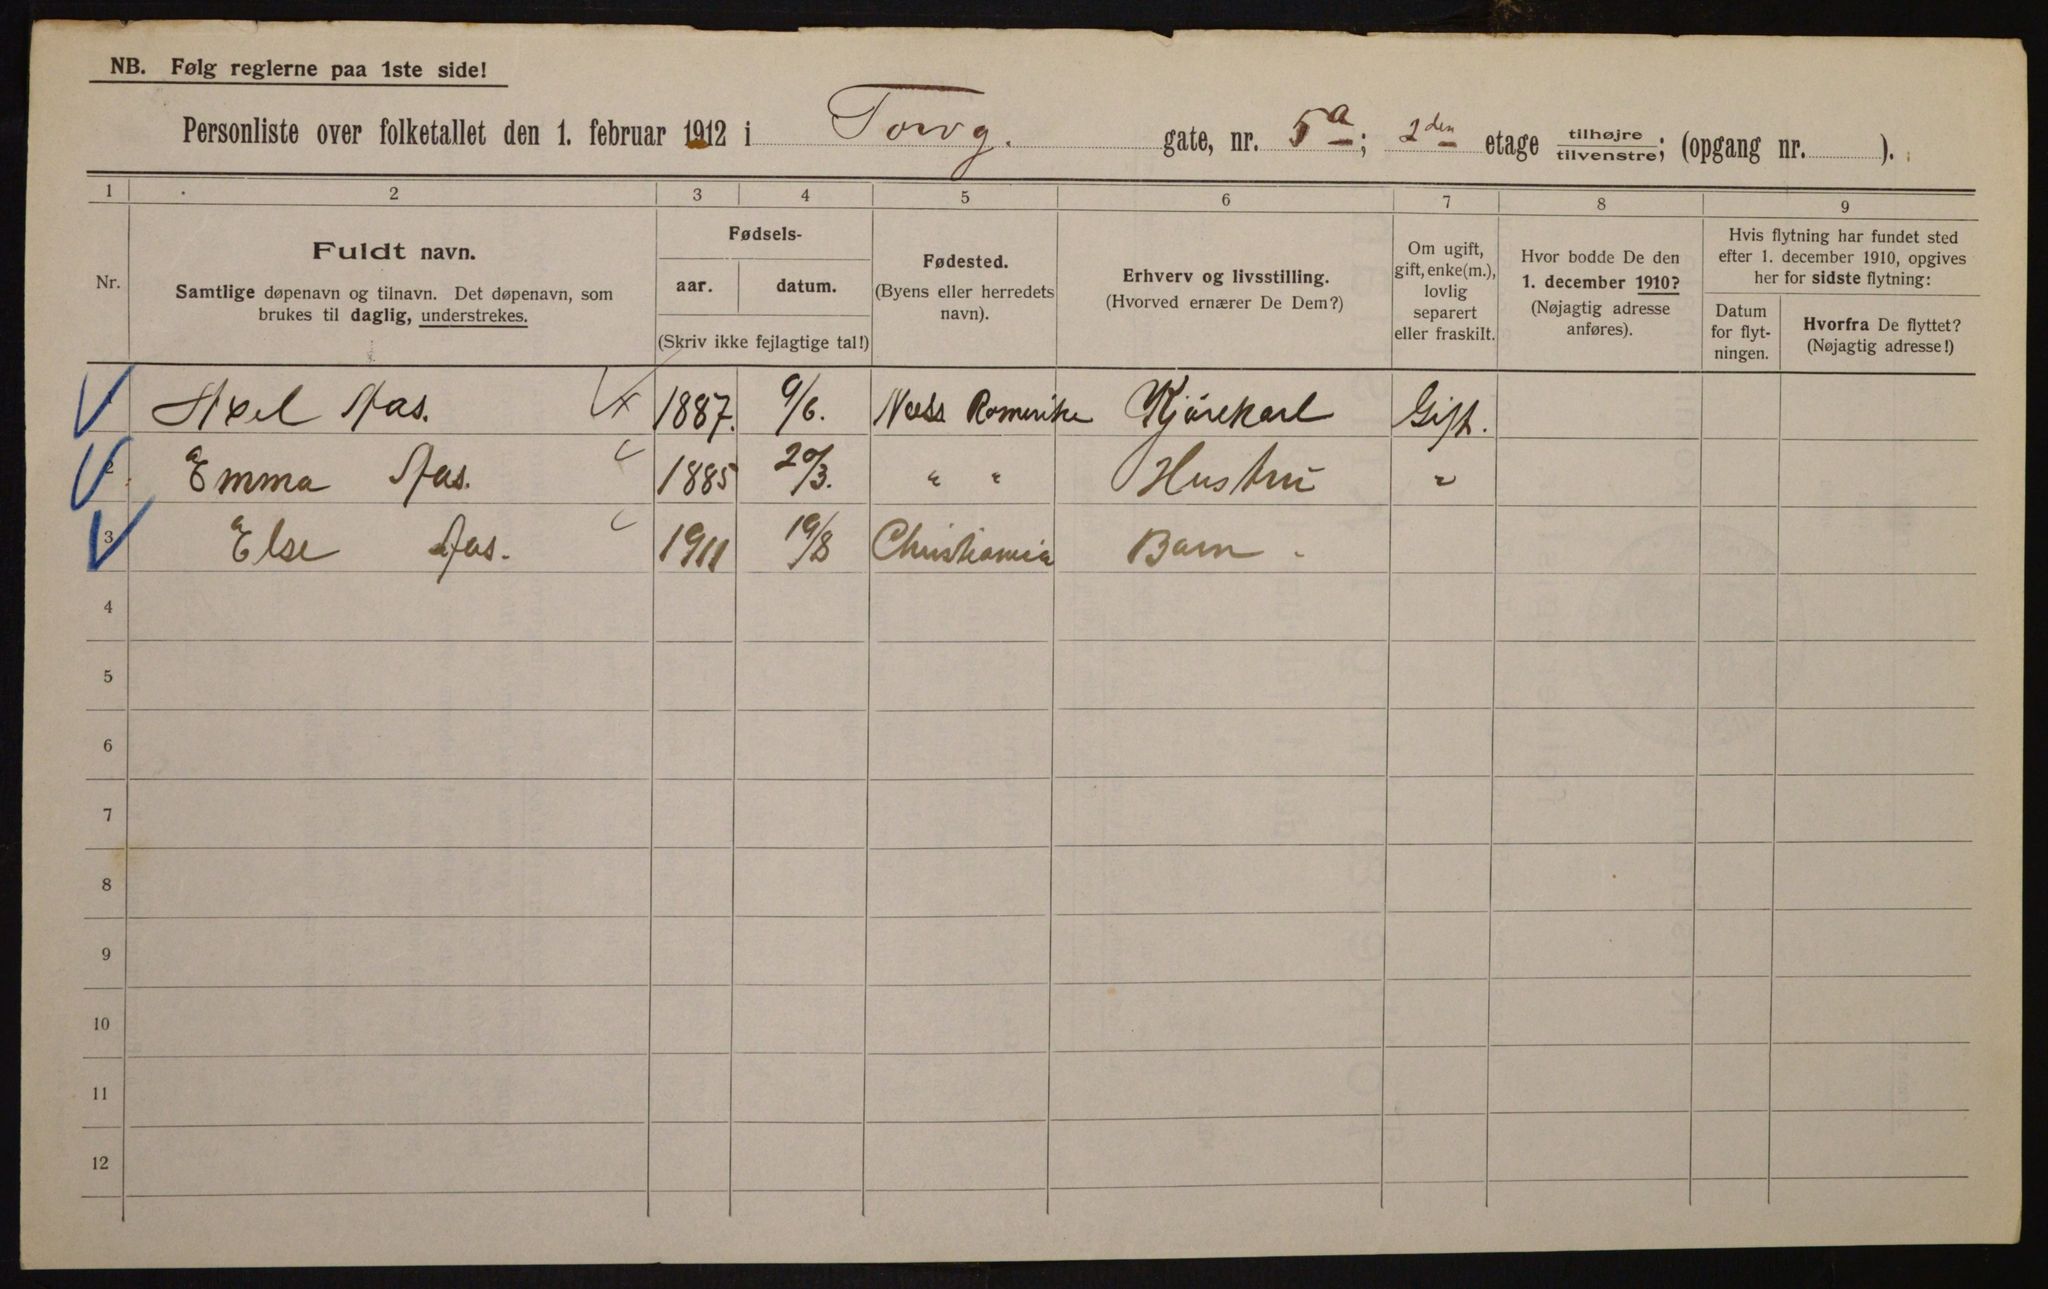 NB. Følg reglerne paa 1ste side!
Personliste over folketallet den 1. februar 1912 i Torvg. gate, nr. 5 a; 2den etage tilhøjre/tilvenstre; (opgang nr. ).
1 2 3 4 5 6 7 8 9
Nr.
Fuldt navn.
Samtlige døpenavn og tilnavn. Det døpenavn, som
brukes til daglig, understrekes.
Fødsels-
aar. datum.
(Skriv ikke fejlagtige tal!)
Fødested.
(Byens eller herredets
navn).
Erhverv og livsstilling.
(Hvorved ernærer De Dem?)
Om ugift,
gift, enke(m.),
lovlig
separert
eller fraskilt.
Hvor bodde De den
1. december 1910?
(Nøjagtig adresse
anføres).
Hvis flytning har fundet sted
efter 1. december 1910, opgives
her for sidste flytning:
Datum
for flyt-
ningen.
Hvorfra De flyttet?
(Nøjagtig adresse!)
Axel Aas. 1887. 9/6. Næss Romerike Kjörekarl Gift.
2 Emma Aas. 1885 20/3. " " Hustru "
3 Else Aas. 1911 19/8 Christiania Barn
4
5
6
7
8
9
10
11
12